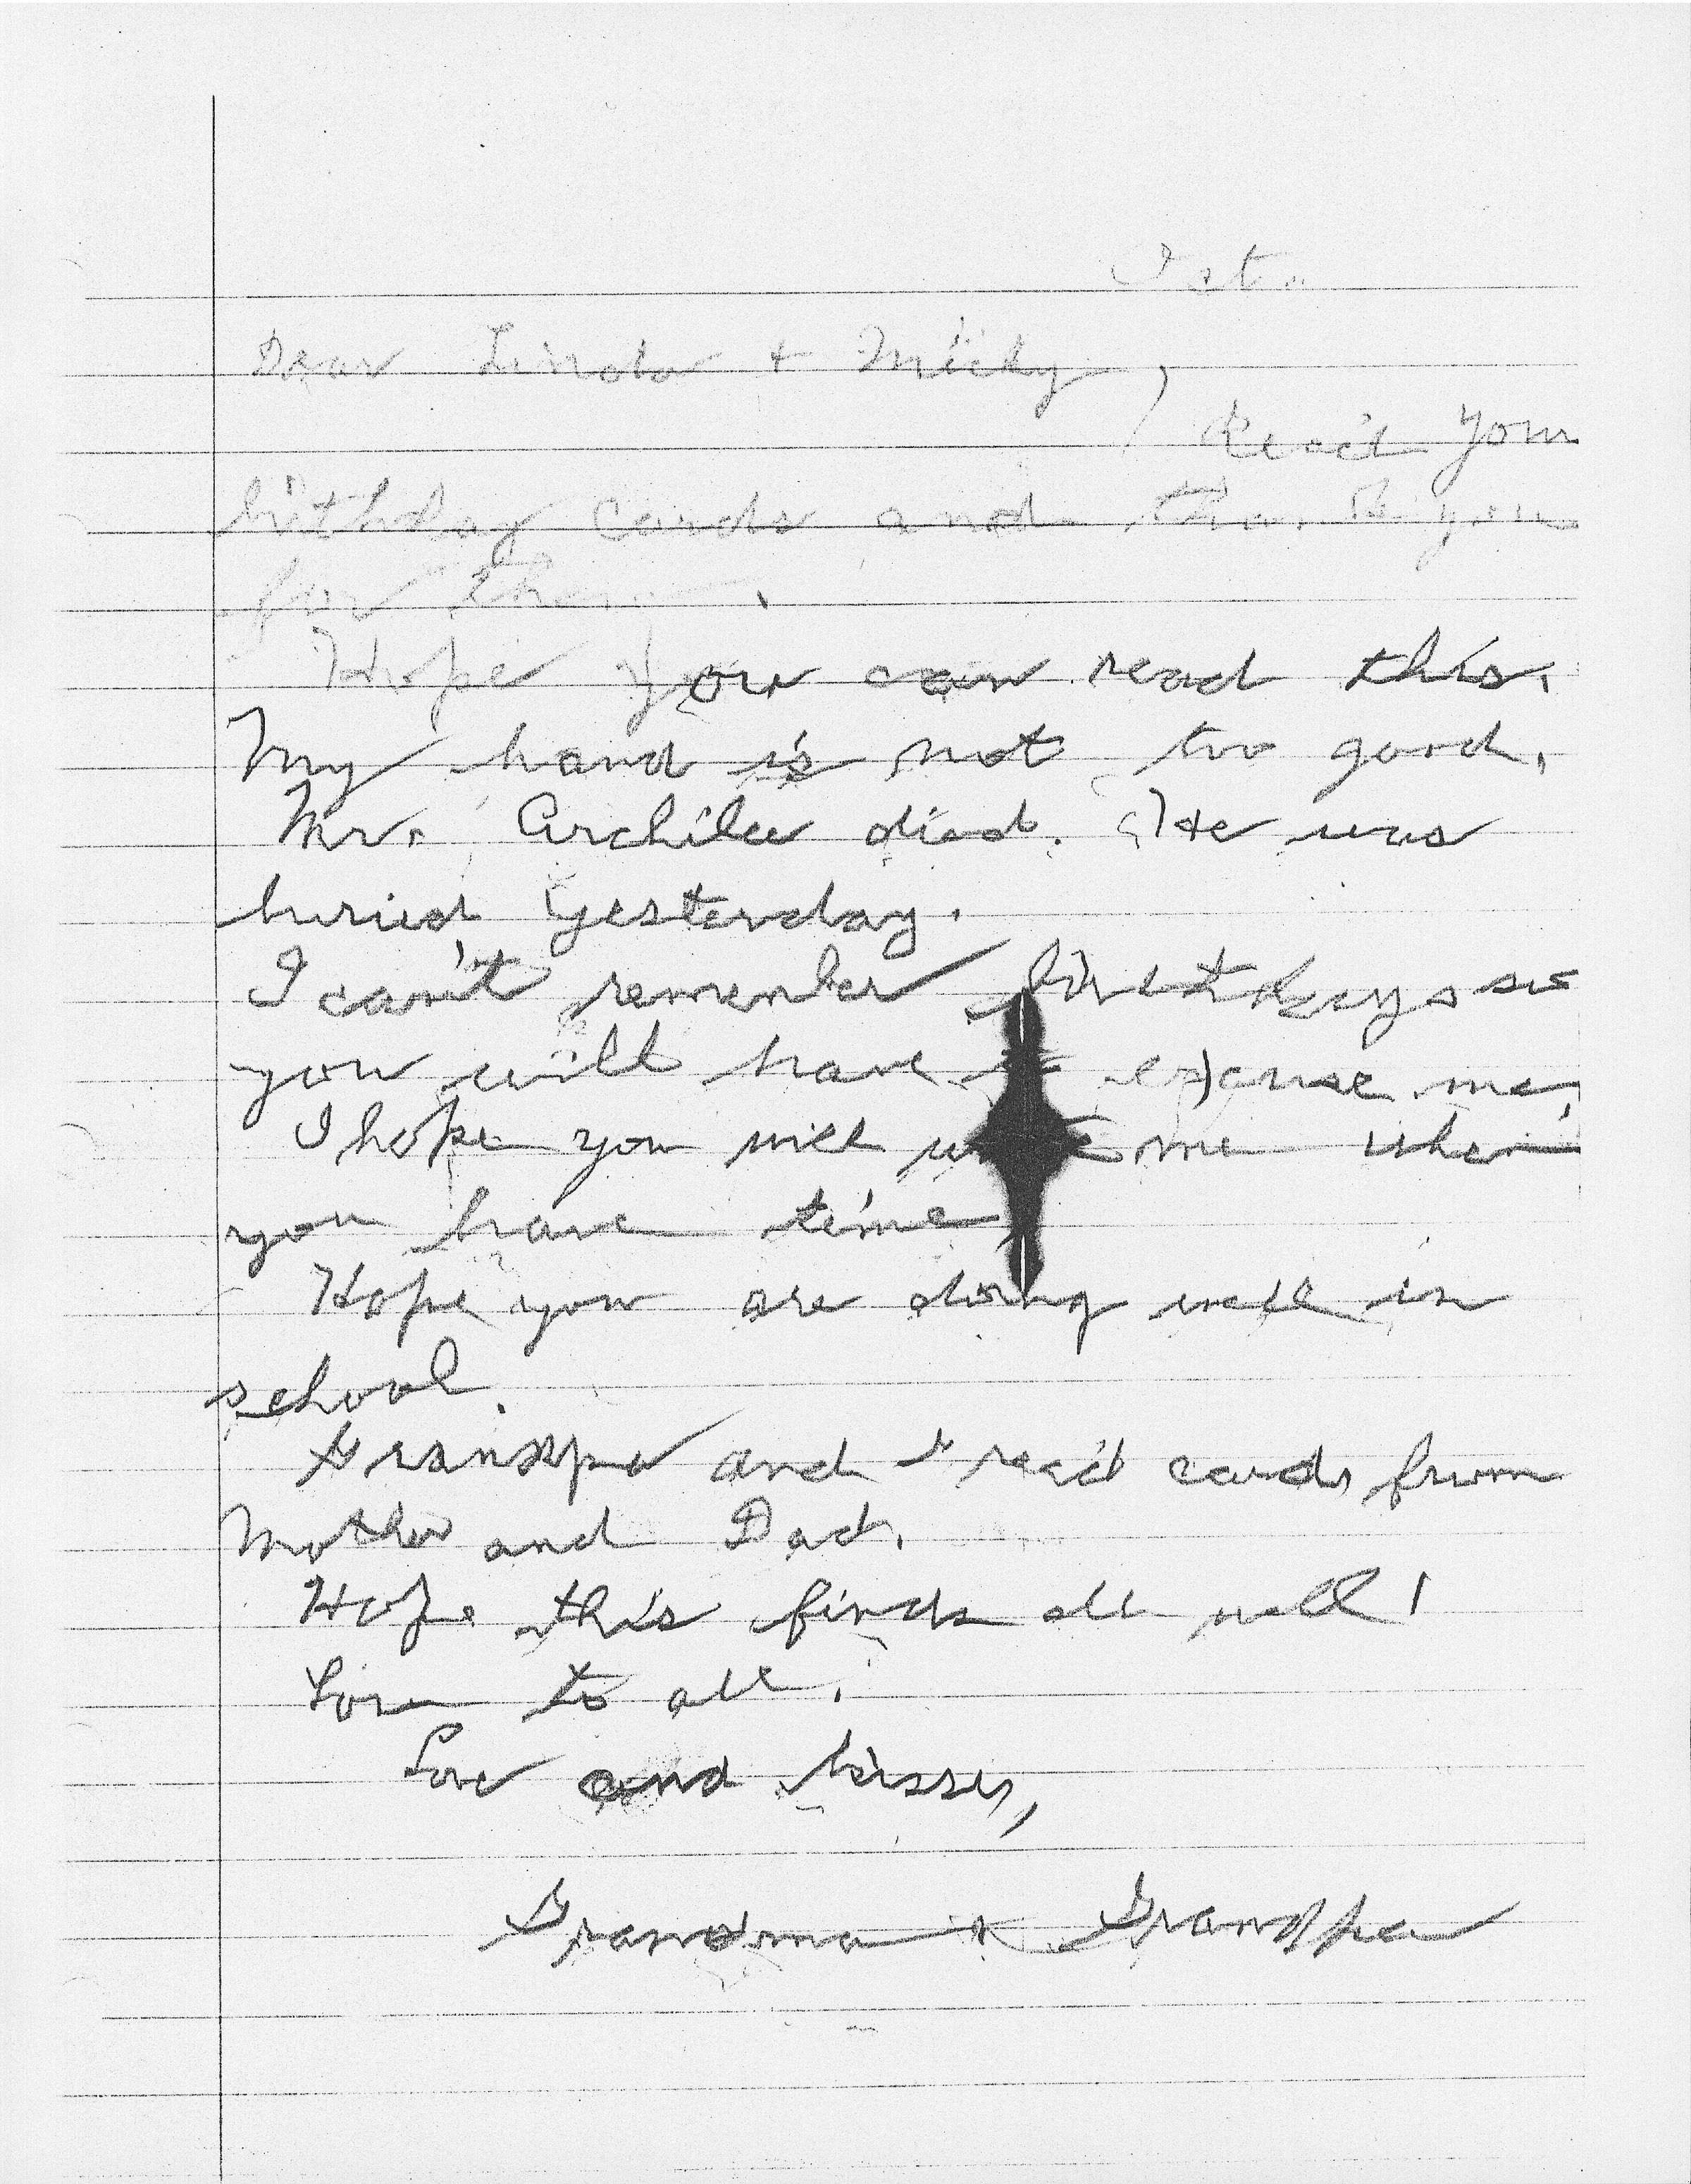 Oct.
Dear Linda + Micky,
Rec'd your
birthday cards and thank you
for them.
Hope you can read this.
My hand is not too good.
Mr. died. He was
buried yesterday.
I can't remember birthdays so
you will have to excuse me.
I hope you will write me when
you have time
Hope you are doing well in
school.
Grandpa and I rec'd cards from
Mother and Dad.
Hope this finds all well!
Love to all.
Love and kisses,
Grandma & Grandpa